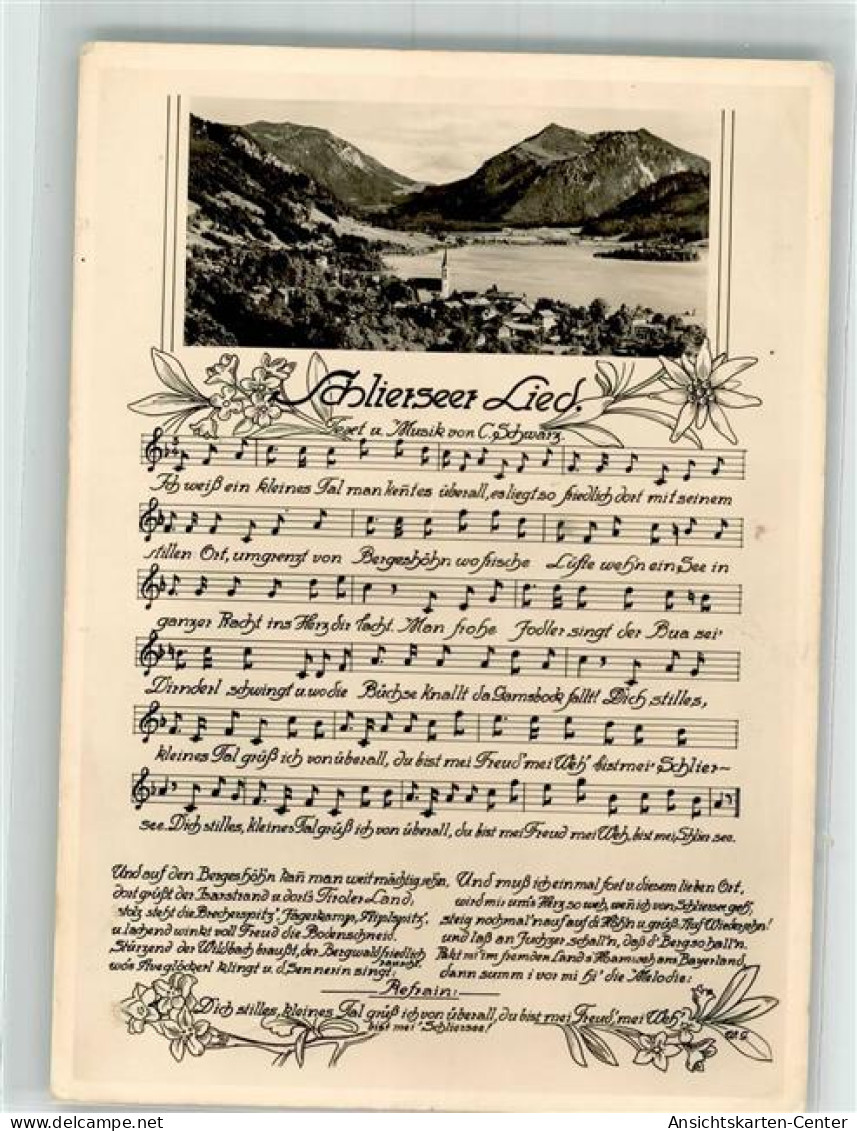 Schlierseer Lied.
Text u. Musik von C. Schwarz.
Ich weiß ein kleines Tal man keñt es überall, es liegt so friedlich dort mit seinem
stillen Ort, umgrenzt von Bergeshöhn wo frische Lüfte weh'n ein See in
ganzer Pracht ins Herz dir lacht. Man frohe Jodler singt der Bua sei'
Dirnderl schwingt u. wo die Büchse knallt da Gamsbock fallt! Dich stilles,
kleines Tal grüß ich von überall, du bist mei Freud' mei Weh' bist mei' Schlier-
see. Dich stilles, kleines Tal grüß ich von überall, du bist mei Freud mei Weh, bist mei Schlier see.
Und auf den Bergeshöh'n kañ man weit mächtig sehn,
dort grüßt der Isarstrand u. dort's Tiroler Land,
stolz steht die Brecherspitz', Jägerkamp, Aiplspitz',
u. lachend winkt voll Freud die Bodenschneid.
Stürzend der Wildbach braußt, der Bergwald friedlich rauscht.
wo's Aveglöckerl klingt u. d. Sennerin singt:
Und muß ich einmal fort v. diesem lieben Ort,
wird mir um's Herz so weh, weñ ich von Schliersee geh',
steig nochmal 'nauf auf di Höh'n u. grüß Auf Wiedersehn!
und laß an Juchzer schall'n, daß d' Berg so hall'n.
Pakt mi' im fremden Land s Hamweh am Bayerland,
dann summ i vor mi hi' die Melodie:
Refrain:
Dich stilles, kleines Tal grüß ich von überall, du bist mei Freud,' mei Weh'
bist mei' Schliersee!
delcampe.net
Ansichtskarten-Center